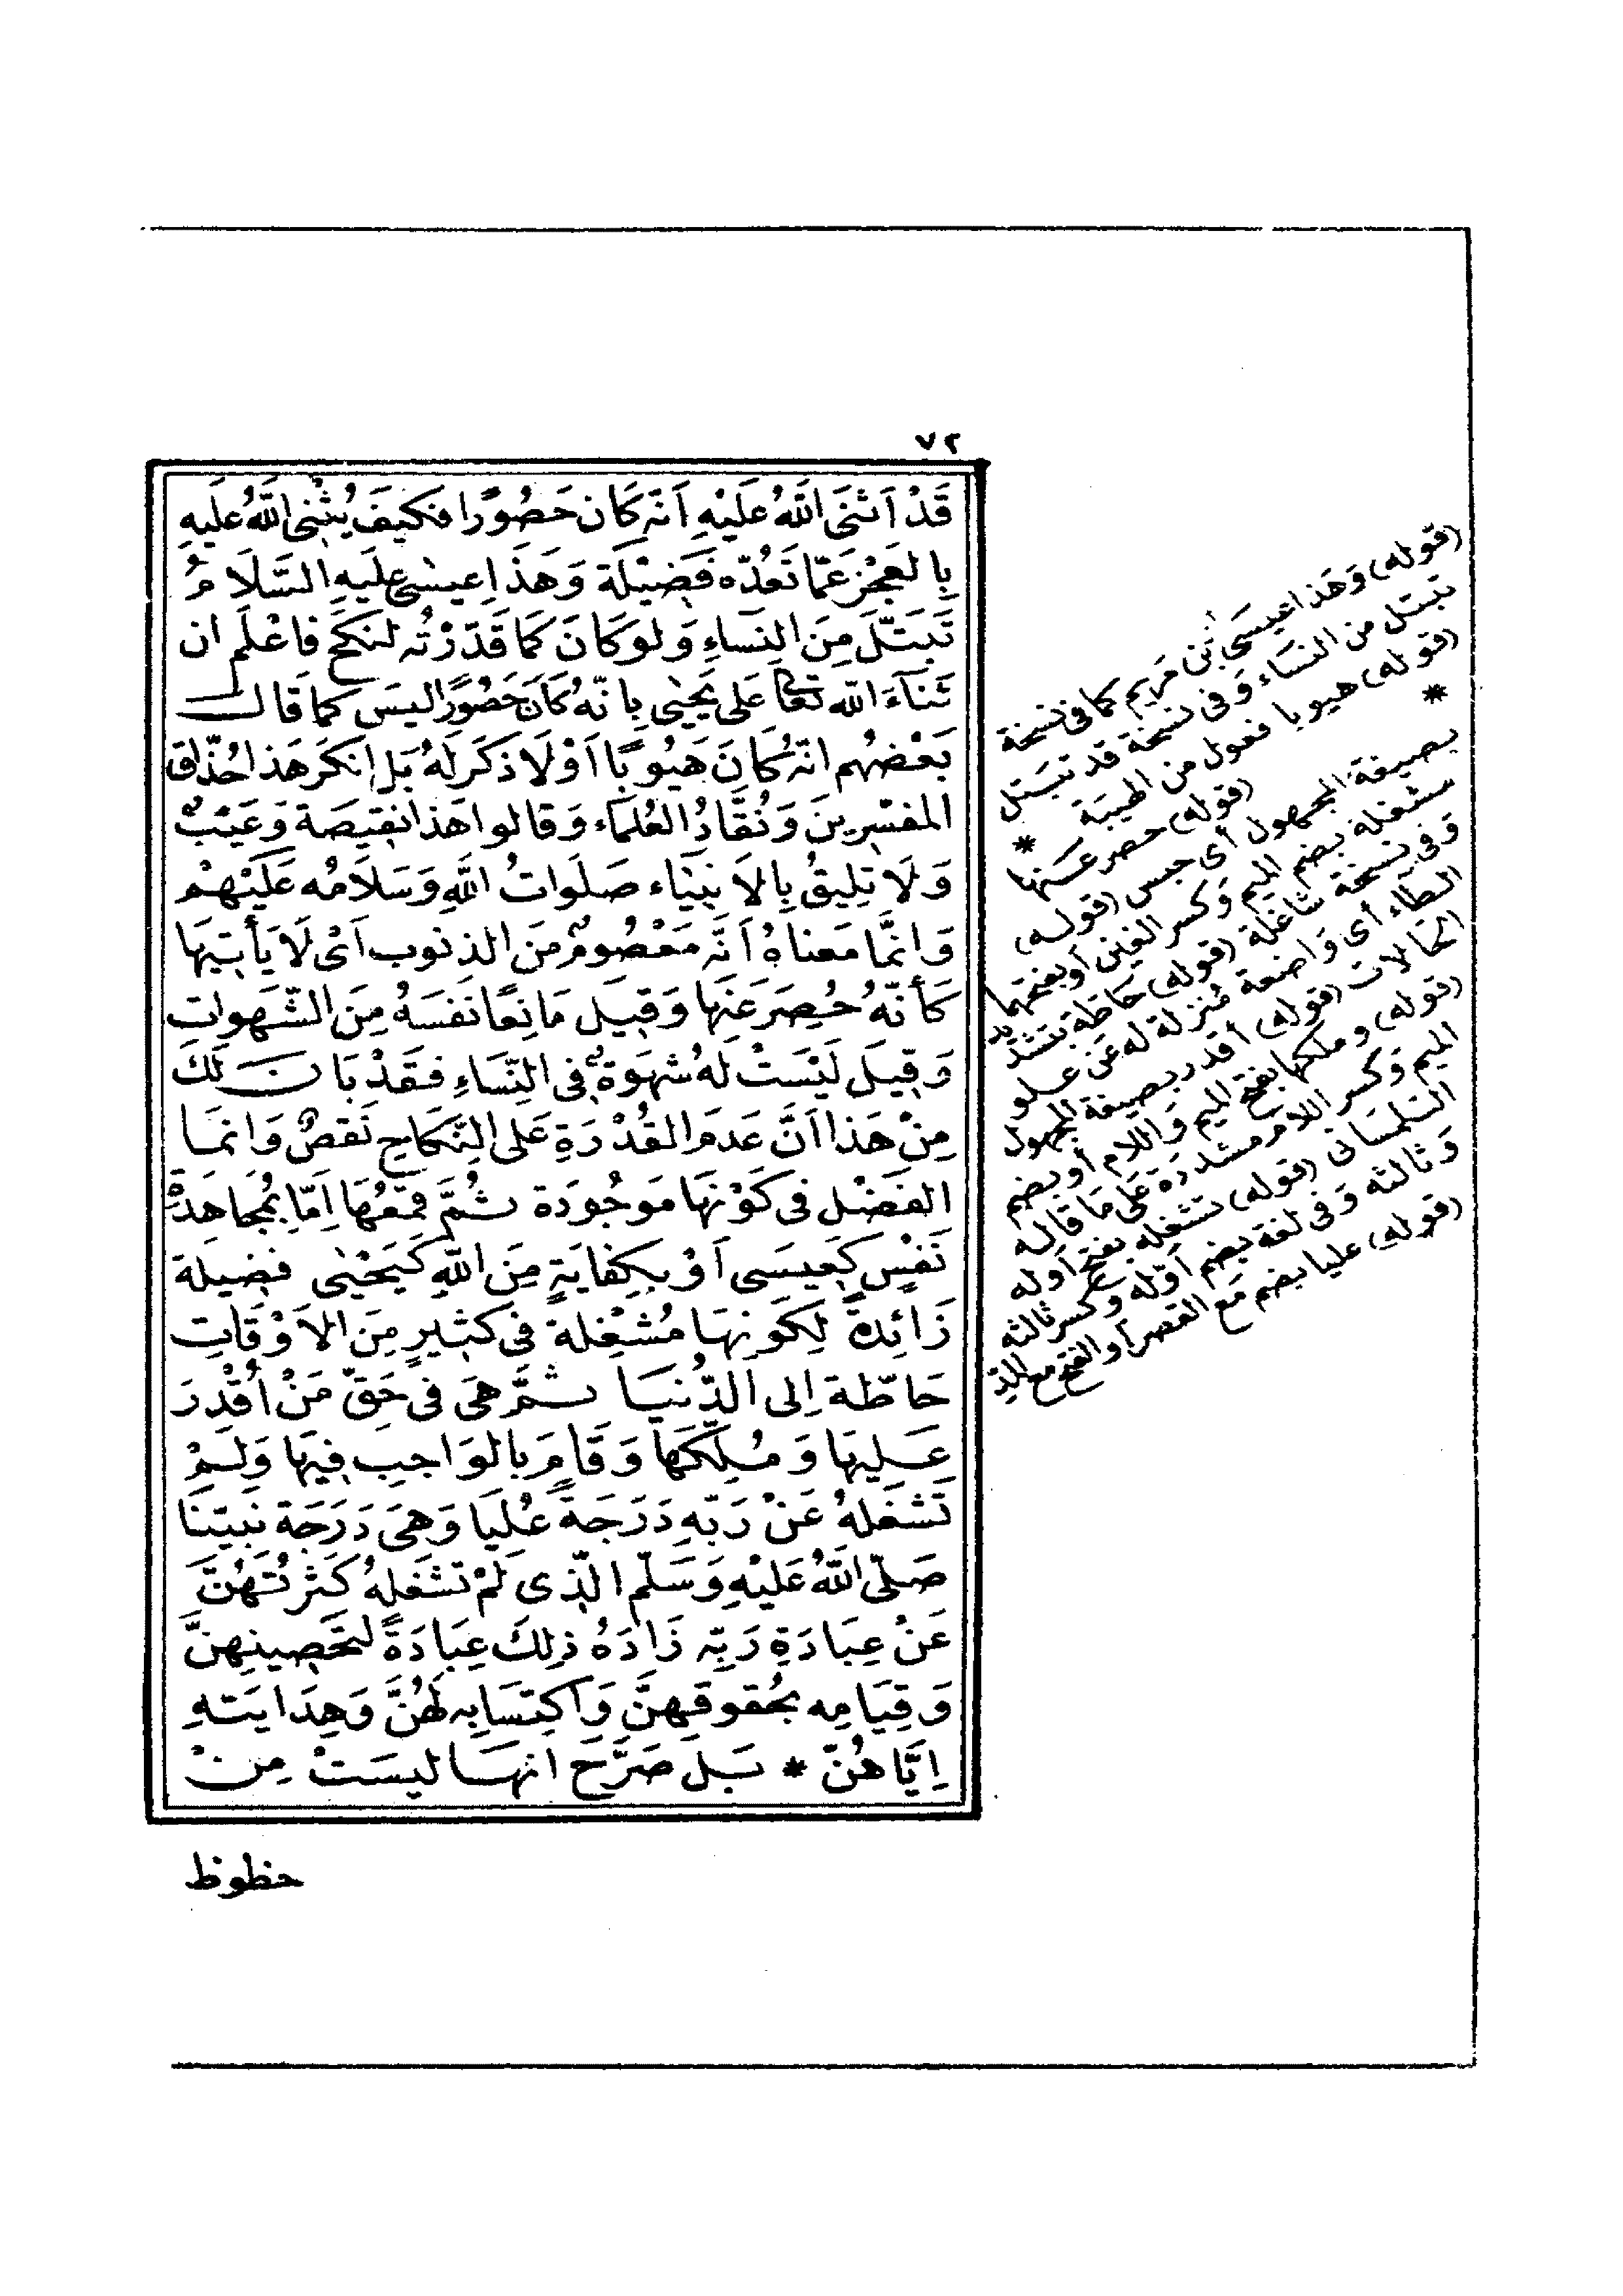 ٧٢
قَدْ اَثنَى اللهُ عَلَيْهِ اَنَّه كَانَ حَصُورًا فكَيفَ يُثْنِي اللهُ عَلَيهِ
بِالعَجْزِ عَمَّا تَعُدّه فَضِيْلَة وَهَذَا عِيسٰى عَلَيهِ السَّلَامُ
تَبَتَّلَ مِنَ النِسَاءِ وَلو كَانَ كَمَا قَدّرْتُه لنكَحَ فاعْلَم ان
ثَنآءَ الله تعَالى عَلى يَحْيٰى بِانّهُ كَانَ حَصُورًا ليسَ كما قَالَ
بَعْضُهُم انّهُ كانَ هَيُوبًا اَوْ لَا ذَكَرَ لَهُ بَل اِنكَرَ هَذا حُذّاق
المفسّرِينَ وَنُقَّادُ العُلمَاء وَقالوا هَذا نقِيصَة وَعَيْبٌ
وَلَا تلِيقُ بِالاَنبيَاء صَلَوَاتُ اللهِ وَسَلَامُه عَلَيْهِمْ
وَانمَّا مَعناهُ اَنَّه مَعْصُومٌ مِنَ الذنوب اَىْ لَا يَأتيهَا
كَأنّهُ حُصِرَ عَنهَا وَقيلَ مَانِعًا نَفسَهُ مِنَ الشّهَوات
وَقِيلَ لَيْسَتْ لهُ شهَوَةٌ فى النِّسَاءِ فقَدْ بَانَ لَكَ
مِنْ هَذا اَنَّ عَدمَ القُدْرَةِ عَلى النِّكَاحِ نَقصٌ وَانمَا
الفَضْل فى كَوْنهَا مَوجُودَة ثُمَّ قمَعُهَا اِمّا بمُجاهَدَةِ
نَفْسٍ كَعِيسَى اَوْ بكِفايَةٍ مِنَ اللهِ كَيَحْيٰى فضِيلة
زَائِدةً لِكَونهَا مُشْغِلة فى كَثيرٍ مِنَ الاَوْقَاتِ
حَاطّة اِلى الدُّنيَا ثمَّ هىَ فى حَقّ مَنْ أُقْدِرَ
عَليهَا وَمُلِّكَهَا وَقَامَ بالوَاجِبِ فيهَا وَلمْ
تَشغَلهُ عَنْ رَبّهِ دَرَجَةً عُليَا وَهىَ دَرَجَة نَبيّنَا
صَلّى اللهُ عَليْهِ وَسَلّم الّذى لَمْ تشغَلهُ كَثْرتُهُنَّ
عَنْ عِبَادَةِ رَبّه زَادَهُ ذلِكَ عِبَادَةً لتَحصِينهِنَّ
وَقِيَامِه بحُقوقهنَّ وَاكتسَابِه لَهُنَّ وَهِدَايَتهِ
اِيَّاهُنّ * بَل صَرَّحَ انهَا ليسَتْ مِنْ
حظوظ
(قوله) وَهَذا عيسَى أبن مَريم كما فى نسخة
تبتل من النسَاء وَفى نسخة قد تبَتل *
(قوله) هيوبا فعول من الهيبَة *
(قوله) حصر عنها
بصيغة المجهول أى حبس (قوله)
مشغلة بضم الميم وَكسر الغين أو بفتحهما
وَفى نسخة شاغلة (قوله) حَاطة بتشديد
الطاء أى وَاضعة مُنزلة له عَن علو
الحالات (قوله) أقدر بصيغة المجهول
(قوله) وملكها بفتح الميم وَاللام أو بضم
الميم وَكسر اللام مشددَة عَلى مَا قاله
التلمسانى (قوله) تشغله بفتح أوله
وَثالثه وَفى لغة بضم أوّله وَكسر ثالثه
(قوله) عليا بضم مَع القصر أو الفتح مع المد